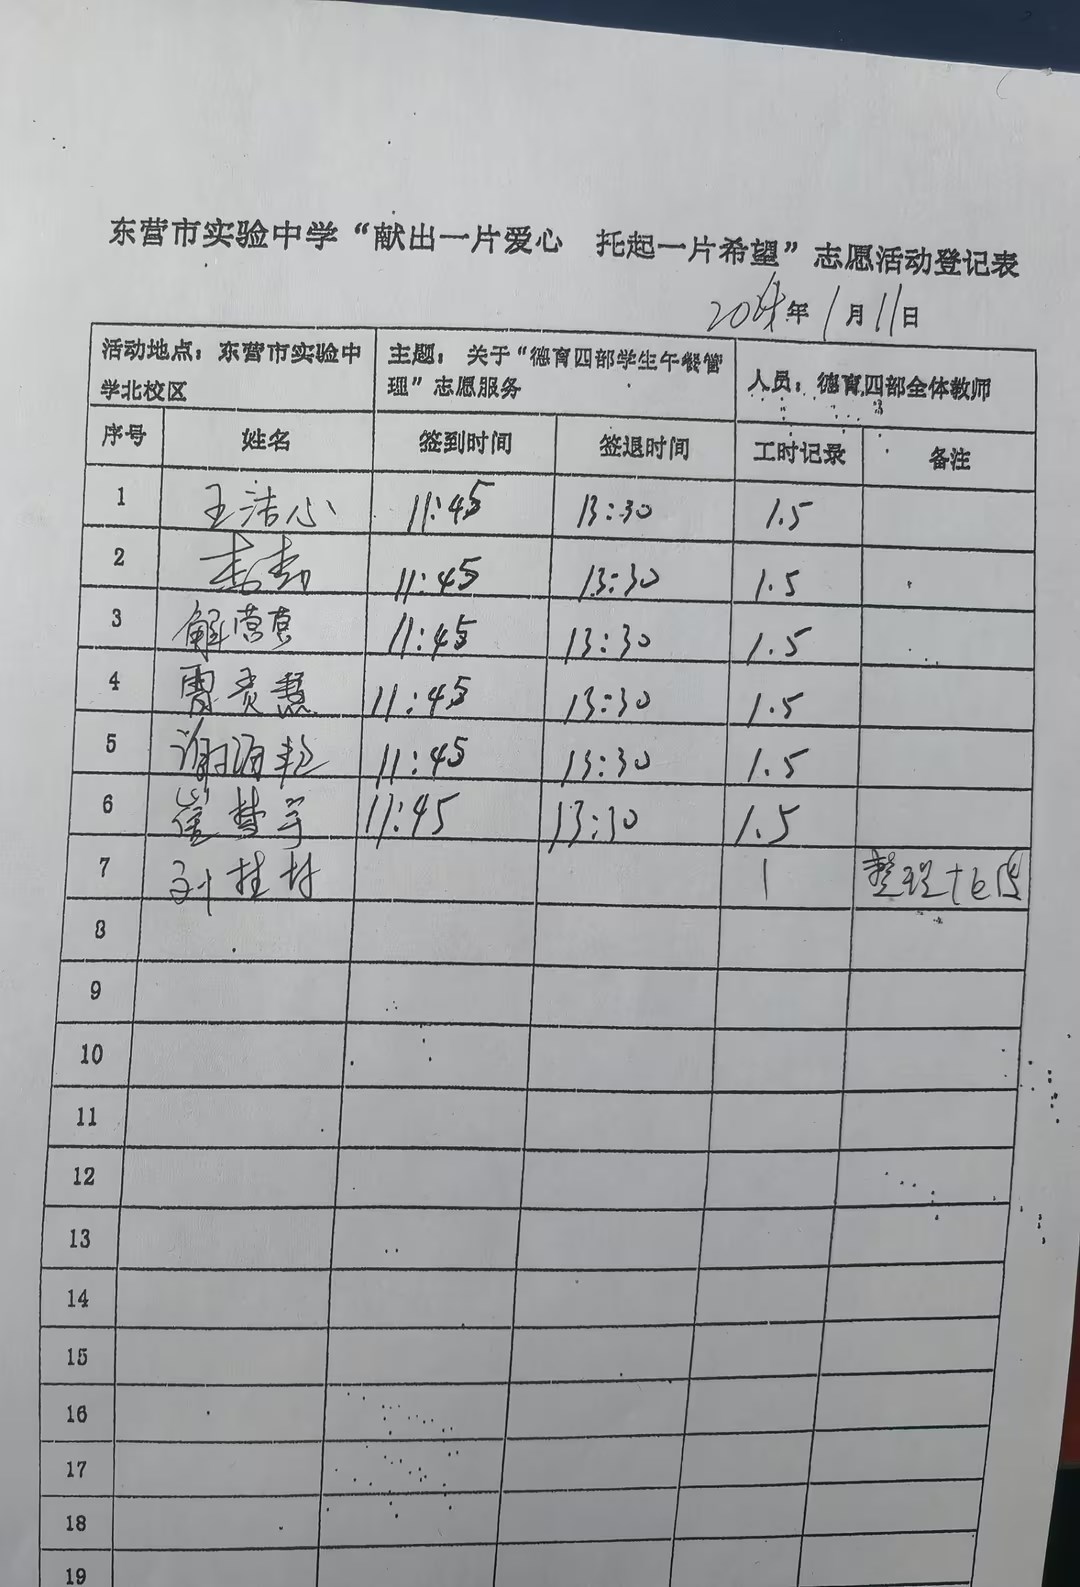 东营市实验中学“献出一片爱心 托起一片希望”志愿活动登记表
年1月11日
活动地点：东营市实验中学北校区 主题：关于“德育四部学生午餐管理”志愿服务 人员：德育四部全体教师
序号 姓名 签到时间 签退时间 工时记录 备注
1 王洁心 11:45 13:30 1.5
2 11:45 13:30 1.5
3 解营营 11:45 13:30 1.5
4 贾贵慧 11:45 13:30 1.5
5 谢 11:45 13:30 1.5
6 崔梦宇 11:45 13:30 1.5
7 刘桂村 1 整理
8
9
10
11
12
13
14
15
16
17
18
19